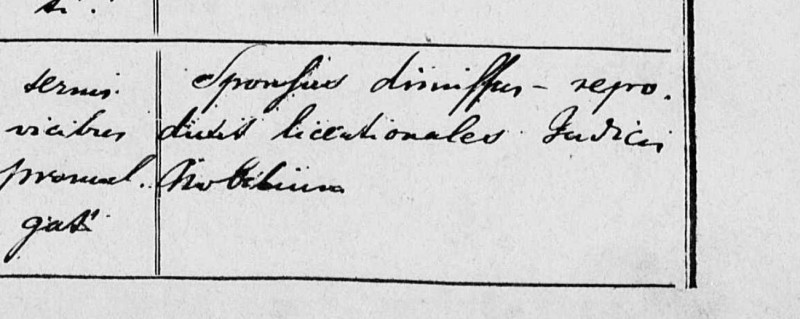 ti.
ternis
vicibus
promul.
gati
Sponsus dimissus – repro.
duxit licentionales Judicis
Nobilium